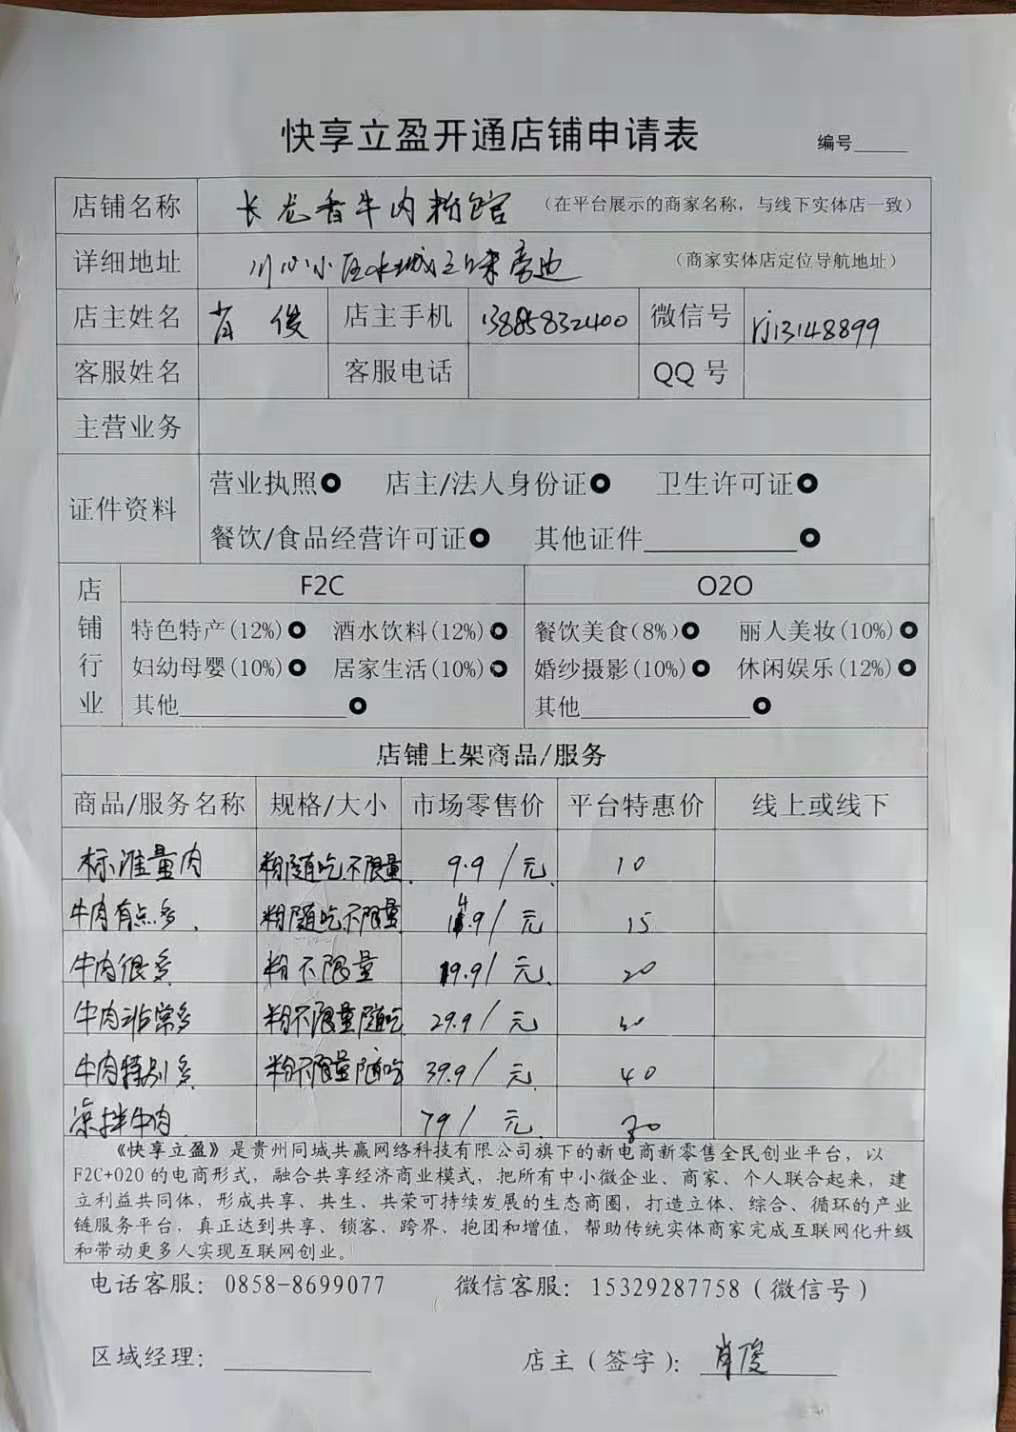 快享立盈开通店铺申请表
编号
店铺名称 长龙香牛肉粉馆 (在平台展示的商家名称，与线下实体店一致)
详细地址 川心小区水城立味旁边 (商家实体店定位导航地址)
店主姓名 肖俊 店主手机 13885832400 微信号 rj13148899
客服姓名 客服电话 QQ 号
主营业务
证件资料 营业执照 店主/法人身份证 卫生许可证
餐饮/食品经营许可证 其他证件
店铺行业
F2C O2O
特色特产(12%) 酒水饮料(12%) 餐饮美食(8%) 丽人美妆(10%)
妇幼母婴(10%) 居家生活(10%) 婚纱摄影(10%) 休闲娱乐(12%)
其他 其他
店铺上架商品/服务
商品/服务名称 规格/大小 市场零售价 平台特惠价 线上或线下
标准量肉 粉随吃不限量 9.9/元 10
牛肉有点多 粉随吃不限量 14.9/元 15
牛肉很多 粉不限量 19.9/元 20
牛肉非常多 粉不限量随吃 29.9/元
牛肉特别多 粉不限量随吃 39.9/元 40
凉拌牛肉 79/元
《快享立盈》是贵州同城共赢网络科技有限公司旗下的新电商新零售全民创业平台，以
F2C+O2O 的电商形式，融合共享经济商业模式，把所有中小微企业、商家、个人联合起来，建
立利益共同体，形成共享、共生、共荣可持续发展的生态商圈，打造立体、综合、循环的产业
链服务平台，真正达到共享、锁客、跨界、抱团和增值，帮助传统实体商家完成互联网化升级
和带动更多人实现互联网创业。
电话客服：0858-8699077 微信客服：15329287758（微信号）
区域经理： 店主（签字）：肖俊